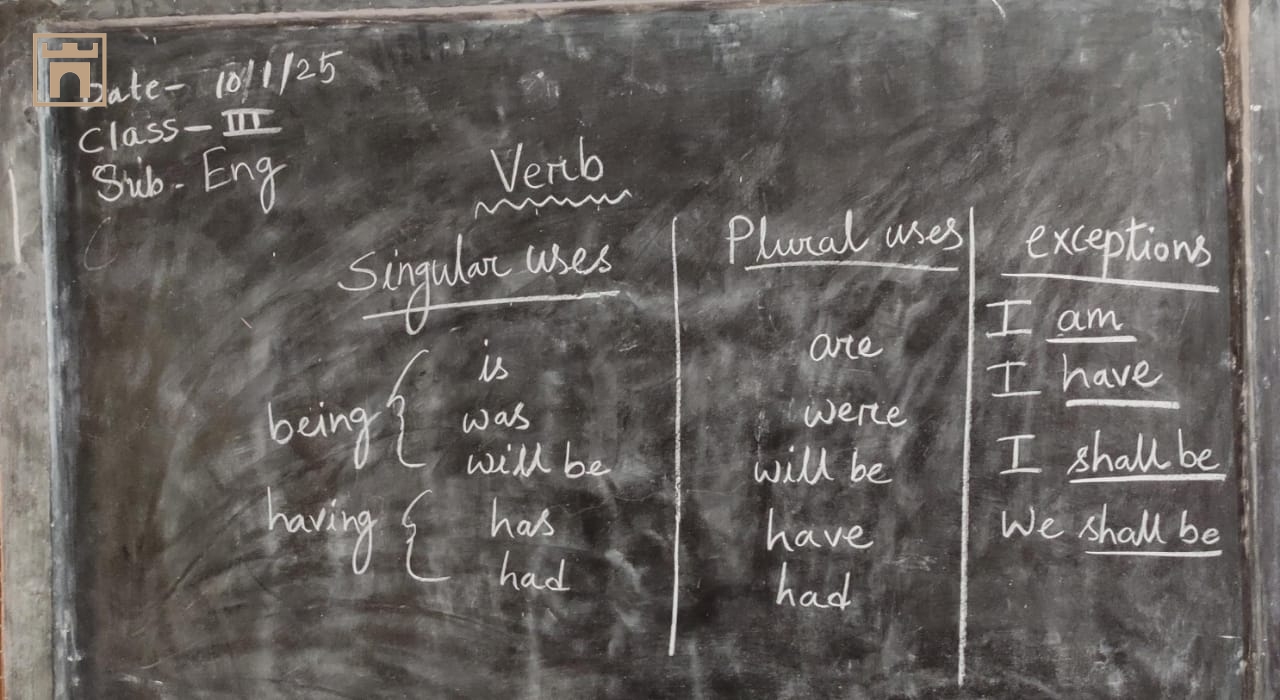 Date- 10/1/25
Class- III
Sub- Eng
Verb
Singular uses Plural uses exceptions
is are I am
being { was were I have
will be will be I shall be
having { has have We shall be
had had